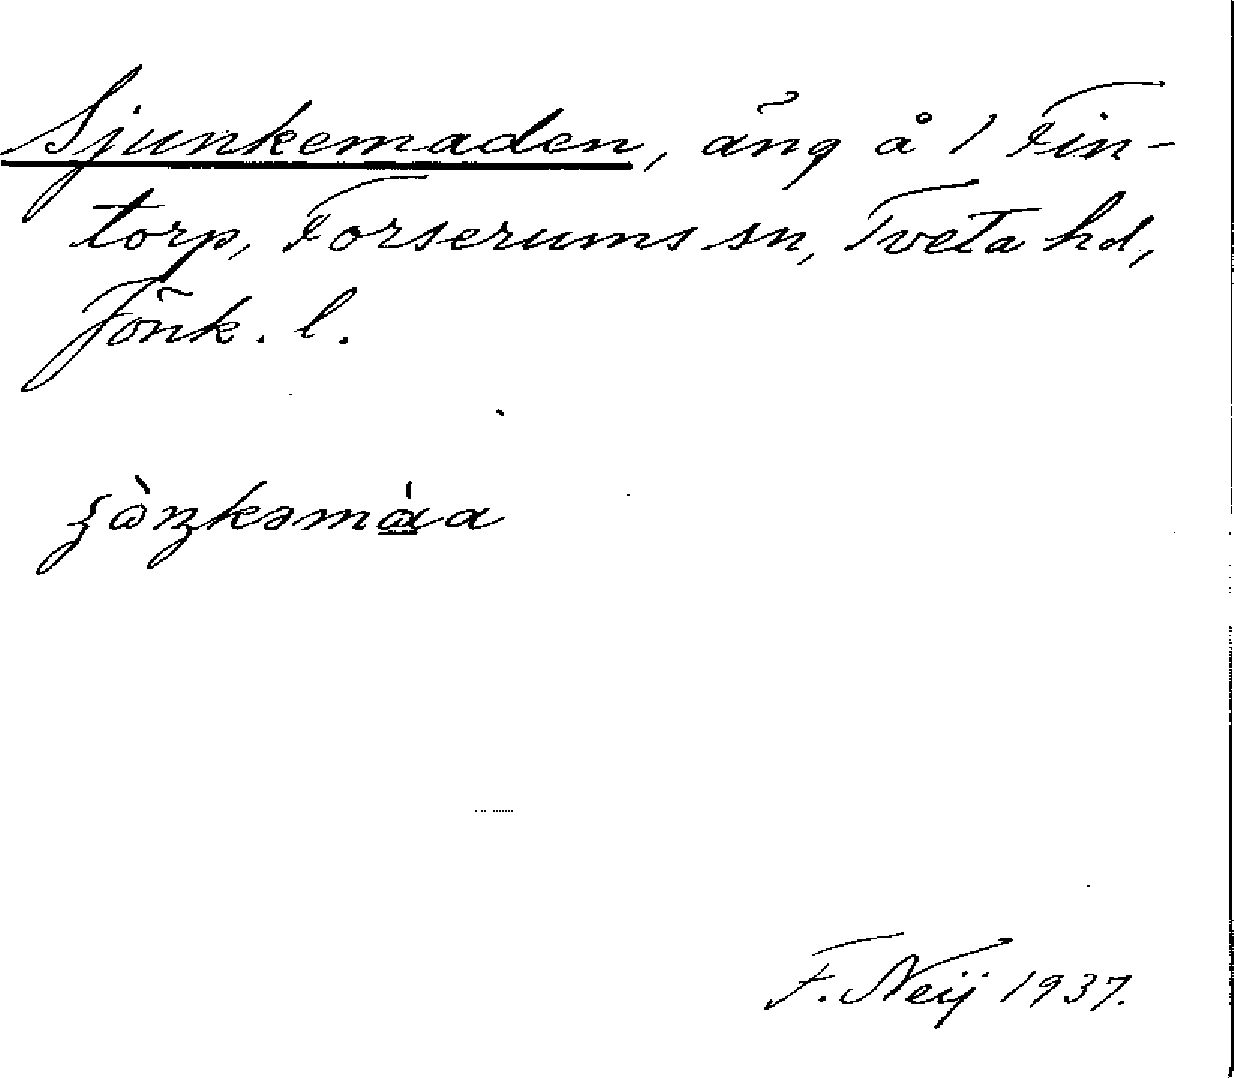 Sjunkemaden, äng å 1 Fin-
torp, Forserums sn, Tveta hd,
Jönk. l.
F. Neij 1937.